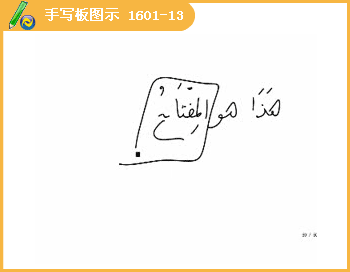 手写板图示 1601-13
هَذَا هُوَ المِفْتَاحُ